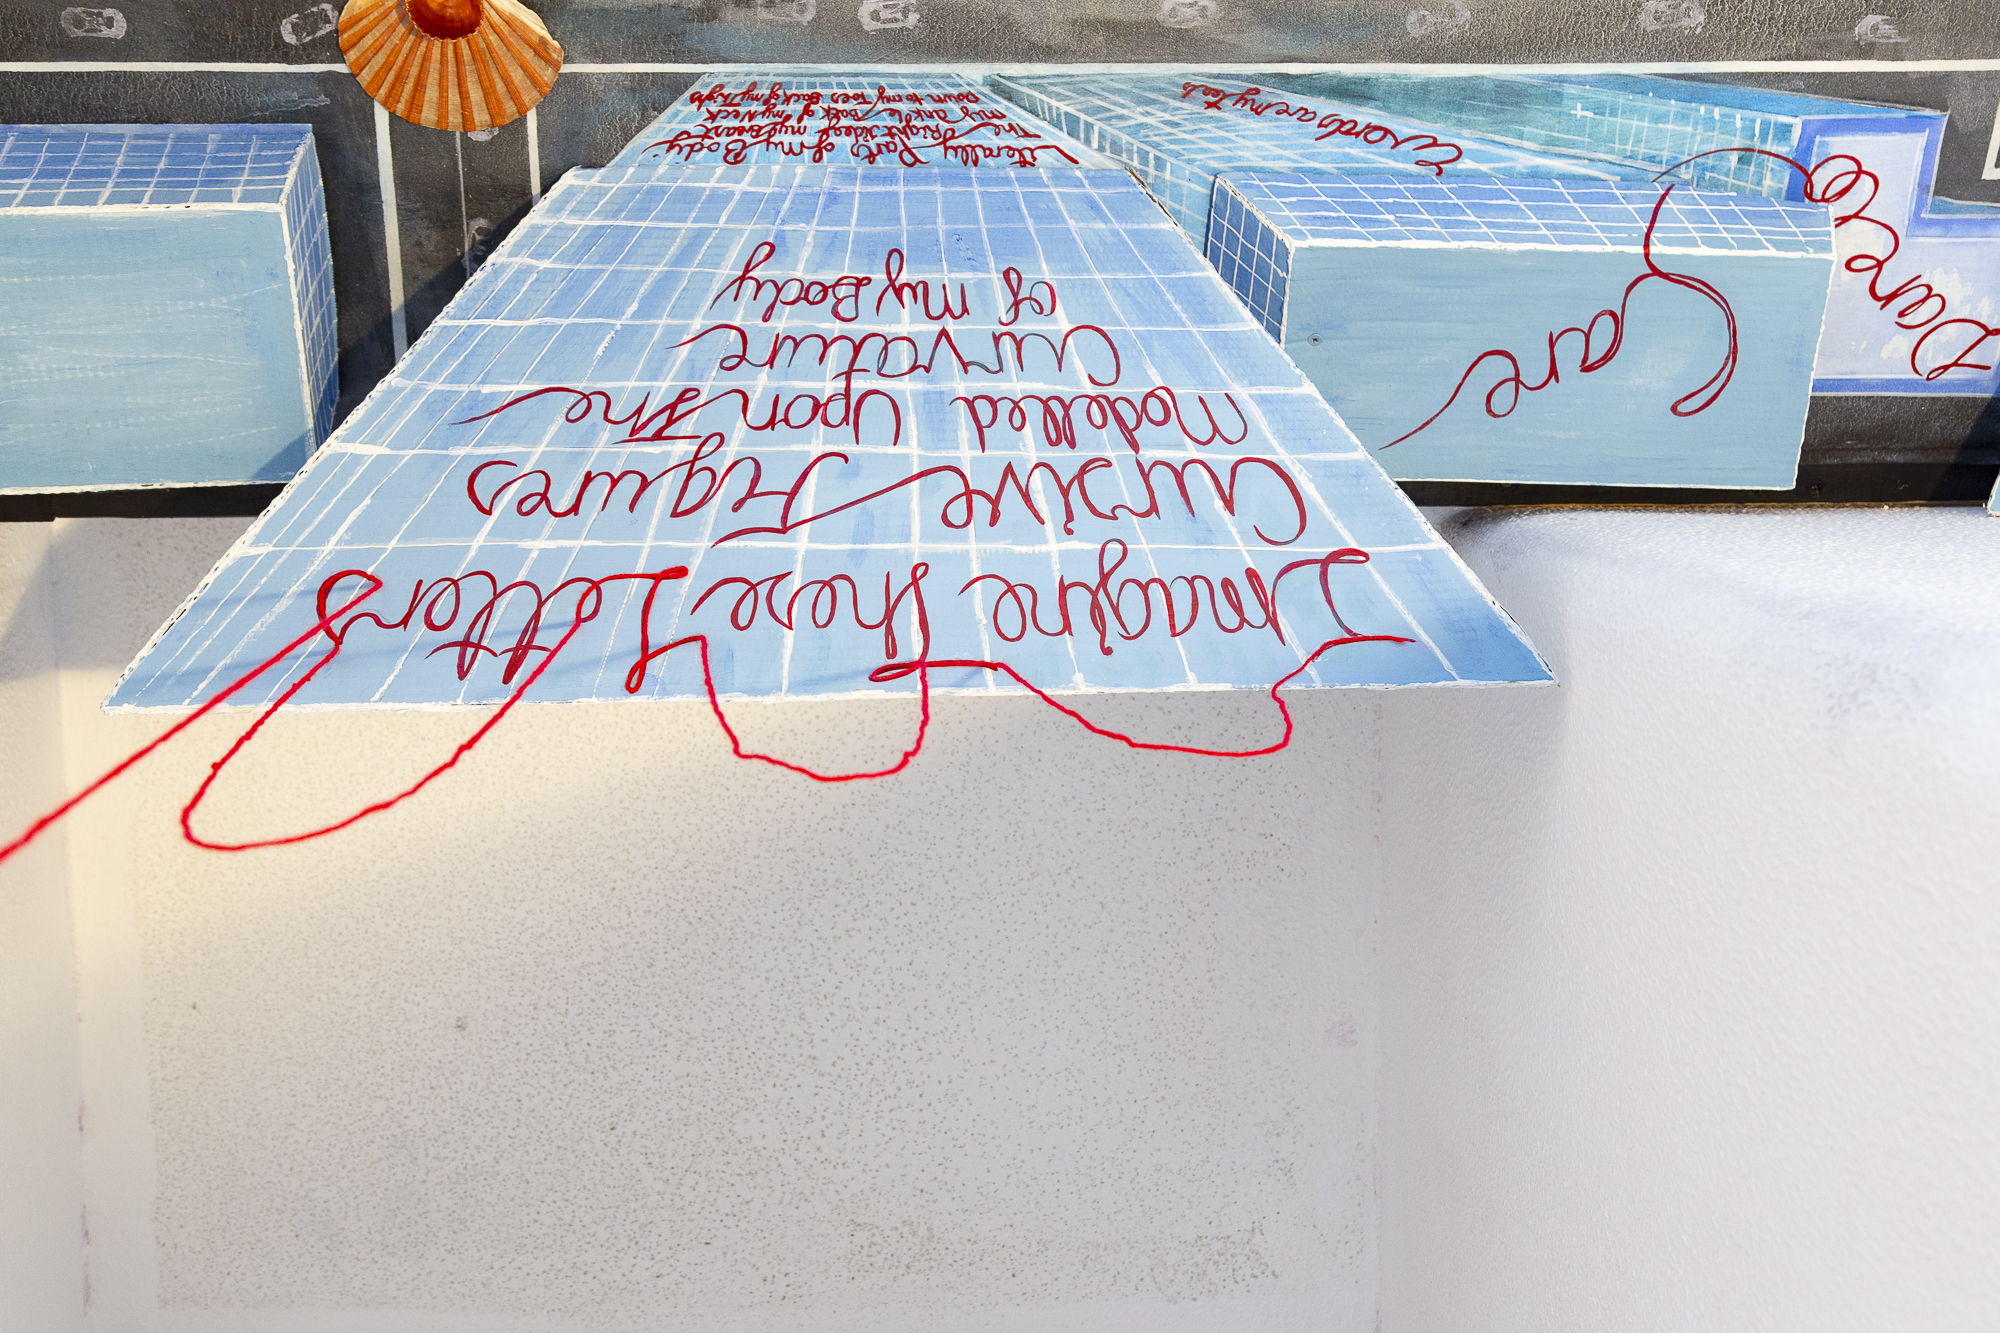 Imagine These Letters
Cursive Figures
Modelled Upon The
Curvature
Of My Body
Literally Parts of my Body
The Right side of my Breast
my ankle Back of my Neck
Down to my Toes Back of my Thighs
Care
are my